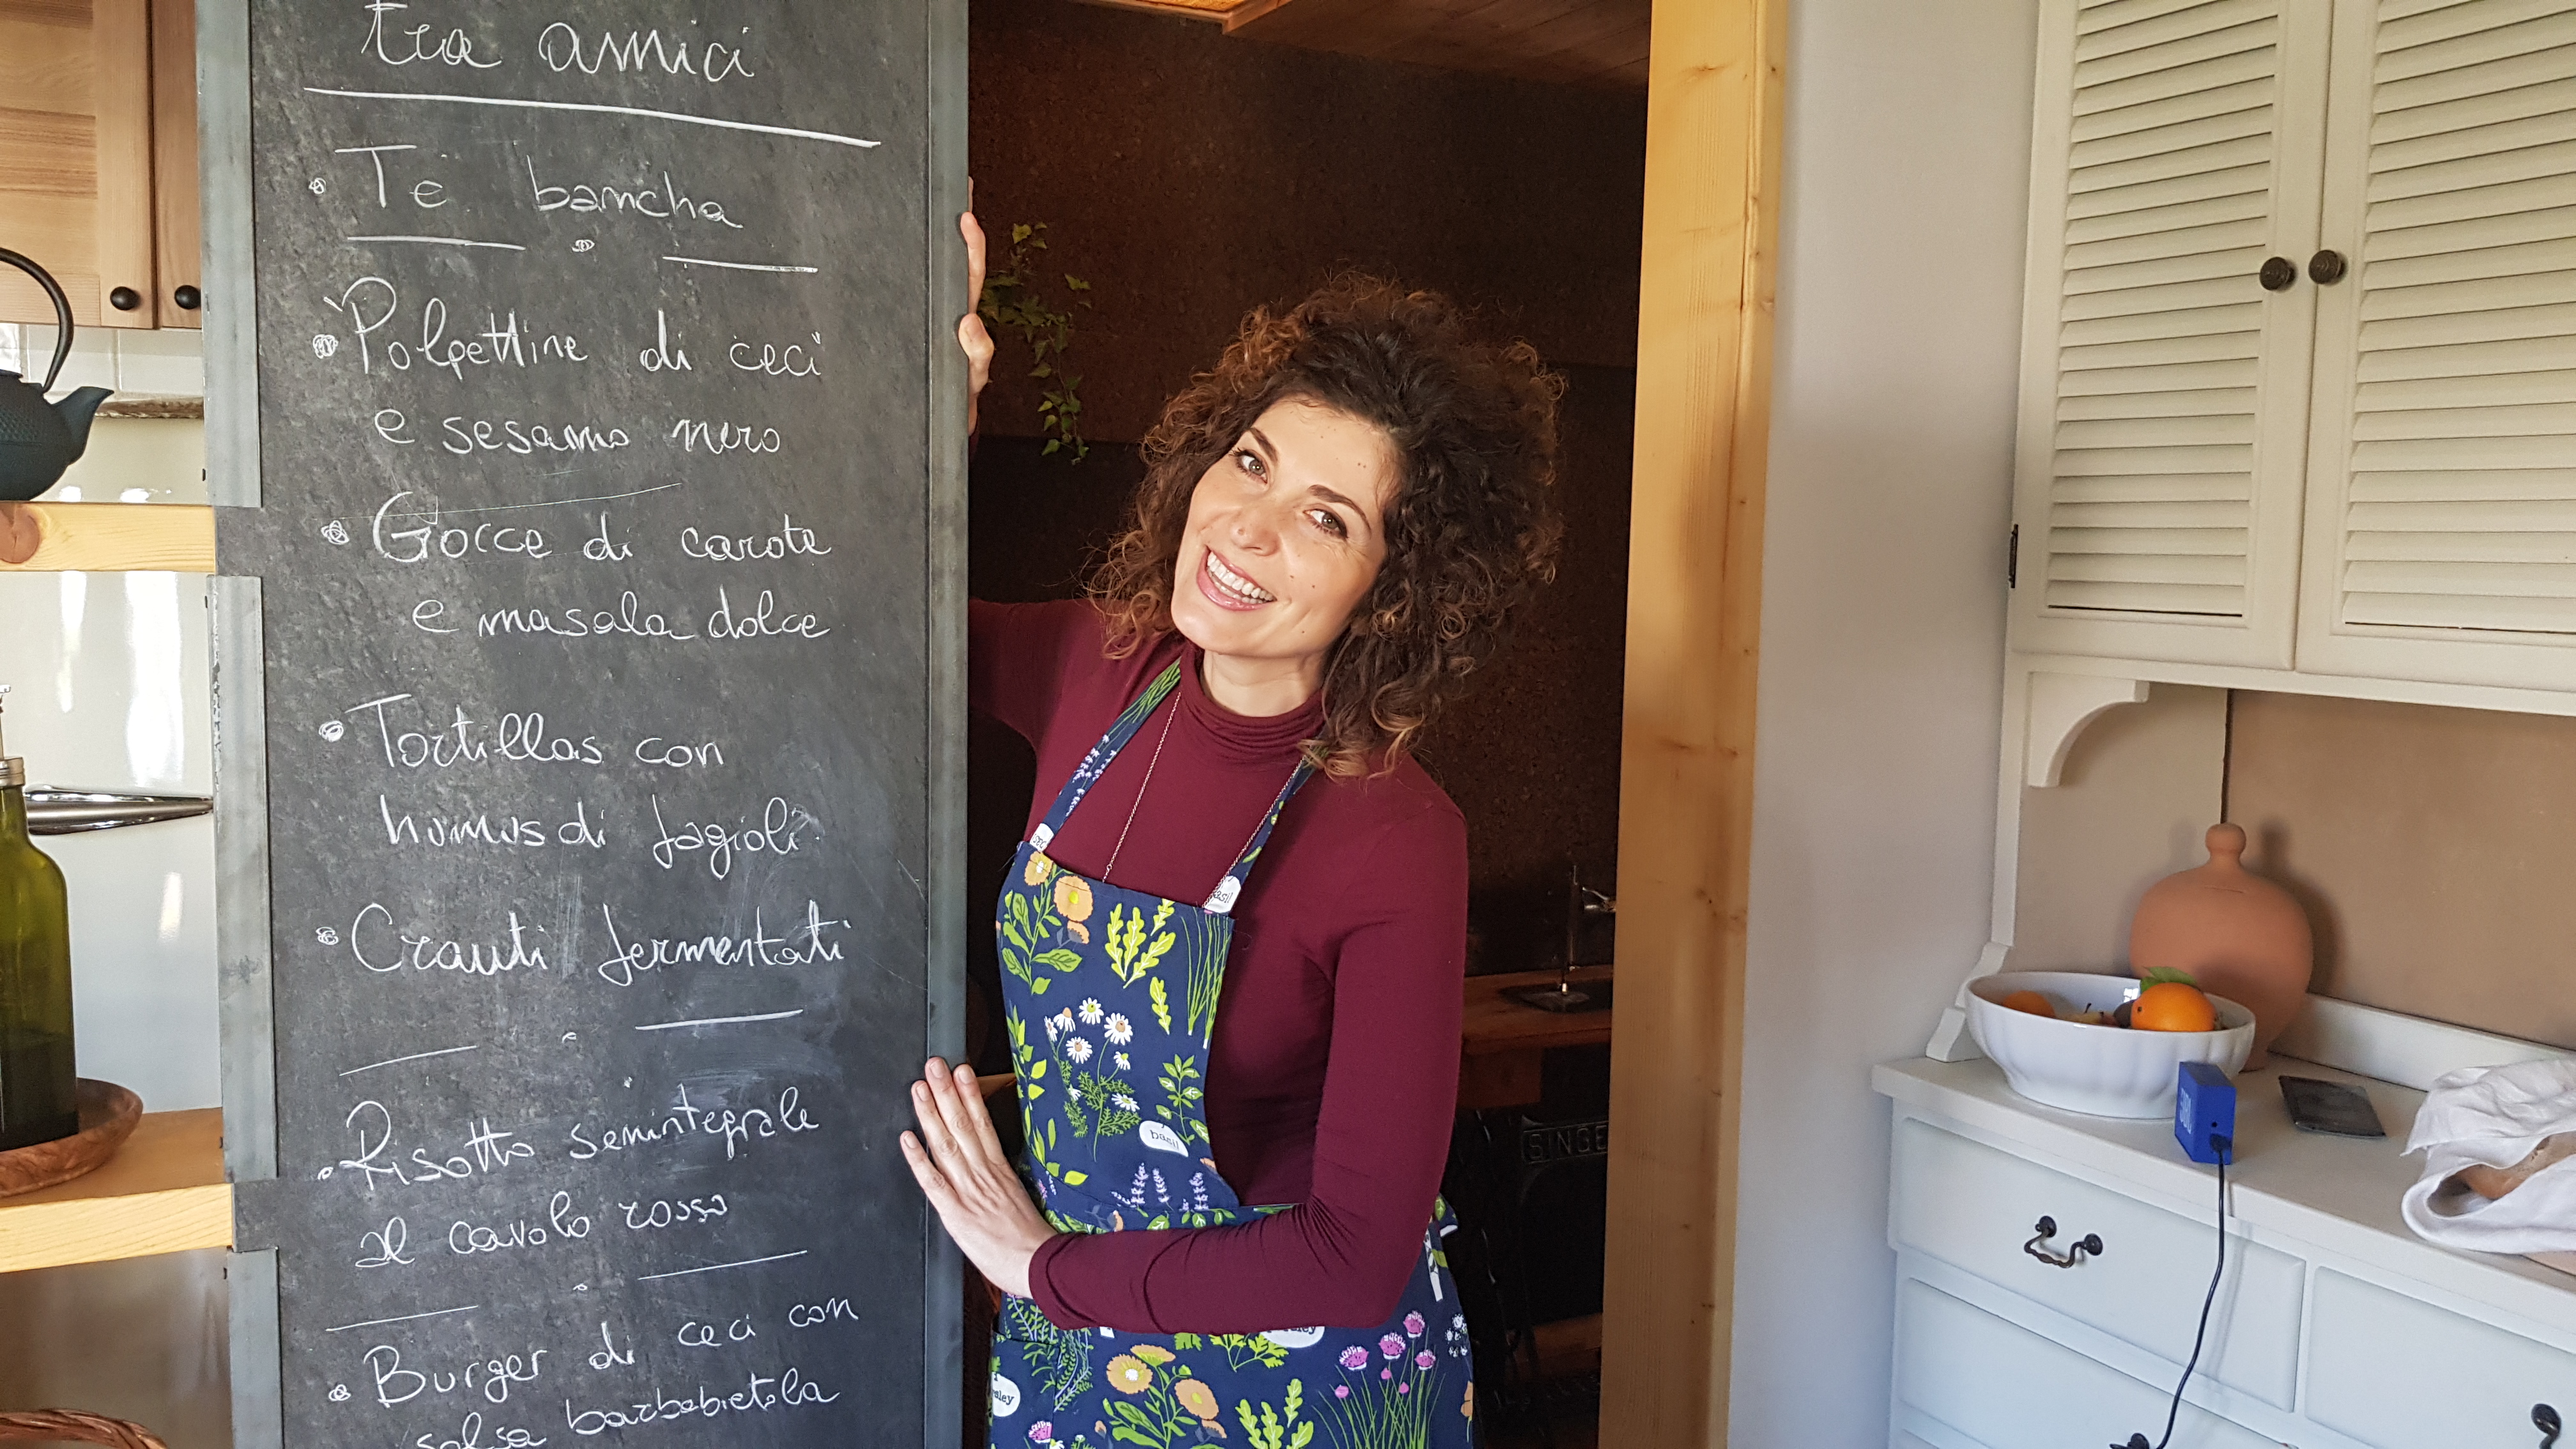 tra amici
Tè bancha
Polpettine di ceci
e sesamo nero
Gocce di carote
e masala dolce
Tortillas con
humus di fagioli
Crauti fermentati
Risotto semintegrale
al cavolo rosso
Burger di ceci con
salsa barbabietola
basil
SINGE